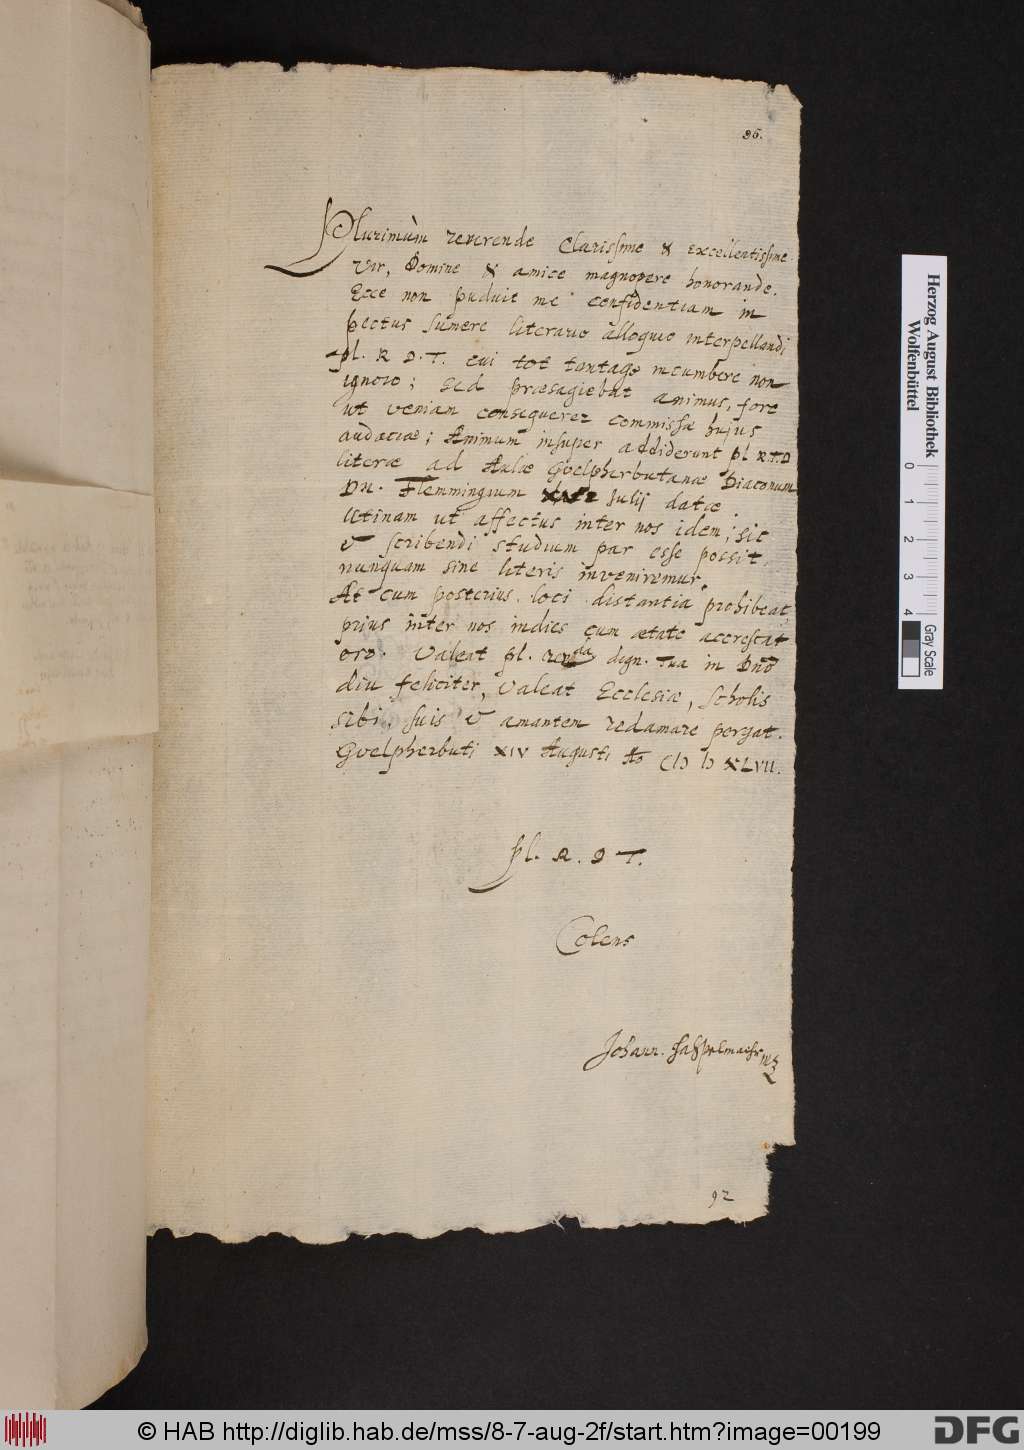 95.
Plurimùm reverende Clarissime & excellentissime
Vir, Domine & amice magnopere honorande.
Ecce non puduit me confidentiam in
pectus sumere literario alloquio interpellandi
pl. R. D. T. cui tot tantaqe incumbere non
ignoro; sed præsagiebat animus, fore
ut veniam consequerer commissæ hujus
audaciæ; Animum insuper addiderunt pl R.T.D
literæ ad Aulæ Gvelpherbutanæ Diaconum
Dn. Flemmingium Julij datæ.
Utinam ut affectus inter nos idem; sic
& scribendi studium par esse possit
nunquam sine literis inveniremur.
At cum posterius loci distantia prohibeat,
prius inter nos indies cum ætate accrescat
oro. Valeat pl. dign. Tua in Dno
diu feliciter, Valeat Ecclesiæ, Scholis
sibi, suis & amantem redamare pergat.
Gvelpherbuti XIV Augusti Ao CIƆ IƆ XLVII.
pl. R. D T.
Colens
Johann.
92
Herzog August Bibliothek
Wolfenbüttel
0 1 2 3 4
Gray Scale
© HAB http://diglib.hab.de/mss/8-7-aug-2f/start.htm?image=00199
DFG